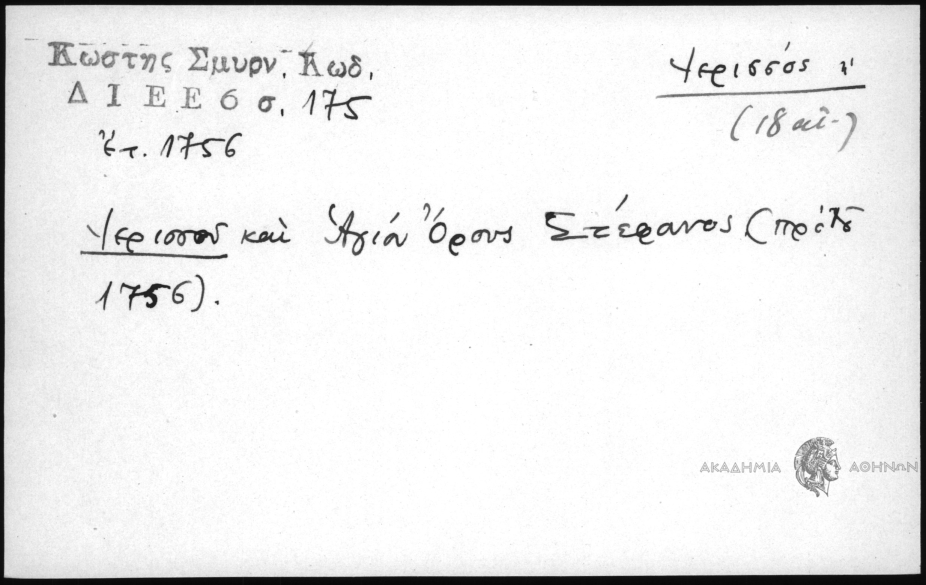 Κωστης Σμυρν. Κωδ.
Δ Ι Ε Ε 6 σ. 175
ἔτ. 1756
Ἱερισσός ἡ
(18 αἰ.)
Ἱερισσοῦ καὶ Ἁγίου Ὄρους Στέφανος (πρὸ τοῦ
1756).
ΑΚΑΔΗΜΙΑ ΑΘΗΝΩΝ